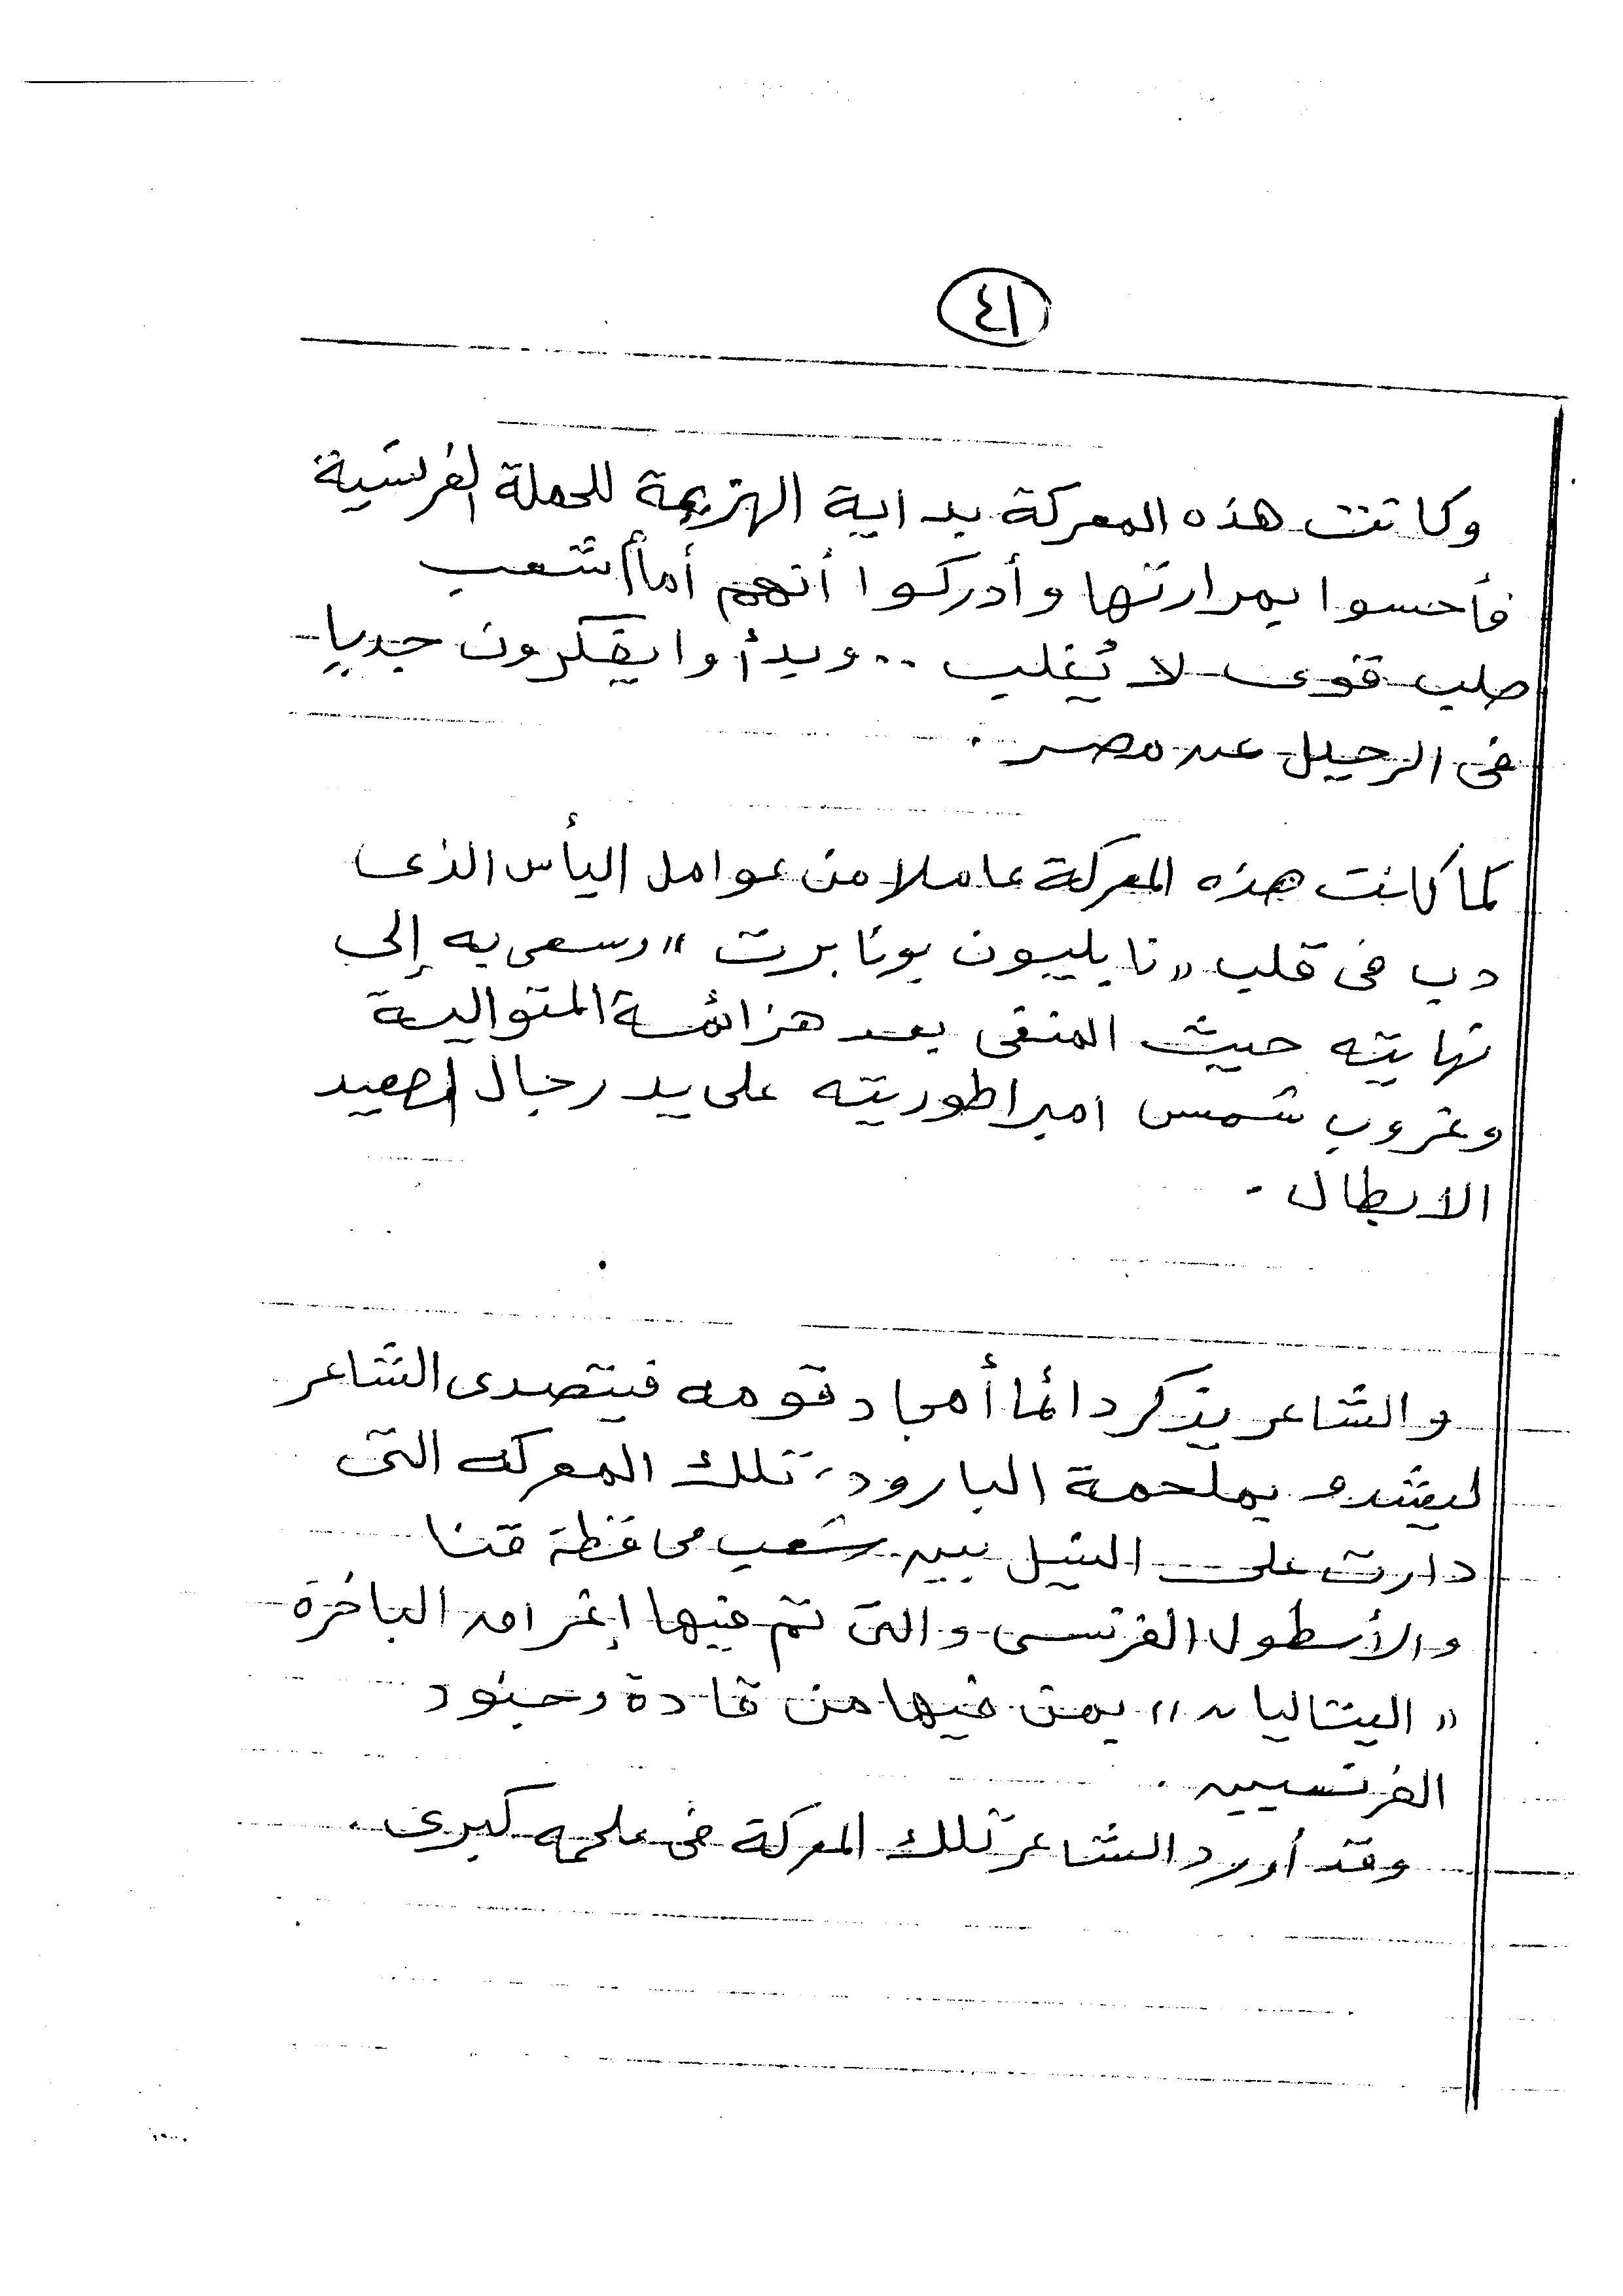 ٤١
وكانت هذه المعركة بداية الهزيمة للحملة الفرنسية
فأحسوا بمرارتها وأدركوا أنهم أمام شعب
صلب قوى لا يُغلب .. وبدأوا يفكرون جديا
فى الرحيل عن مصر .
كما كانت هذه المعركة عاملا من عوامل اليأس الذى
دب فى قلب "نابليون بونابرت" وسعى به إلى
نهايته حيث المنفى بعد هزائمه المتوالية
وغروب شمس امبراطوريته على يد رجال الصعيد
الابطال .
والشاعر يذكر دائما أمجاد قومه فيتصدى الشاعر
ليشدو بملحمة البارود، تلك المعركه التى
دارت على النيل بين شعب محافظة قنا
والأسطول الفرنسى والتى تم فيها إغراق الباخرة
"اليتاليا" بمن فيها من قادة وجنود
الفرنسيين .
وقد أورد الشاعر تلك المعركة فى ملحمه كبرى .